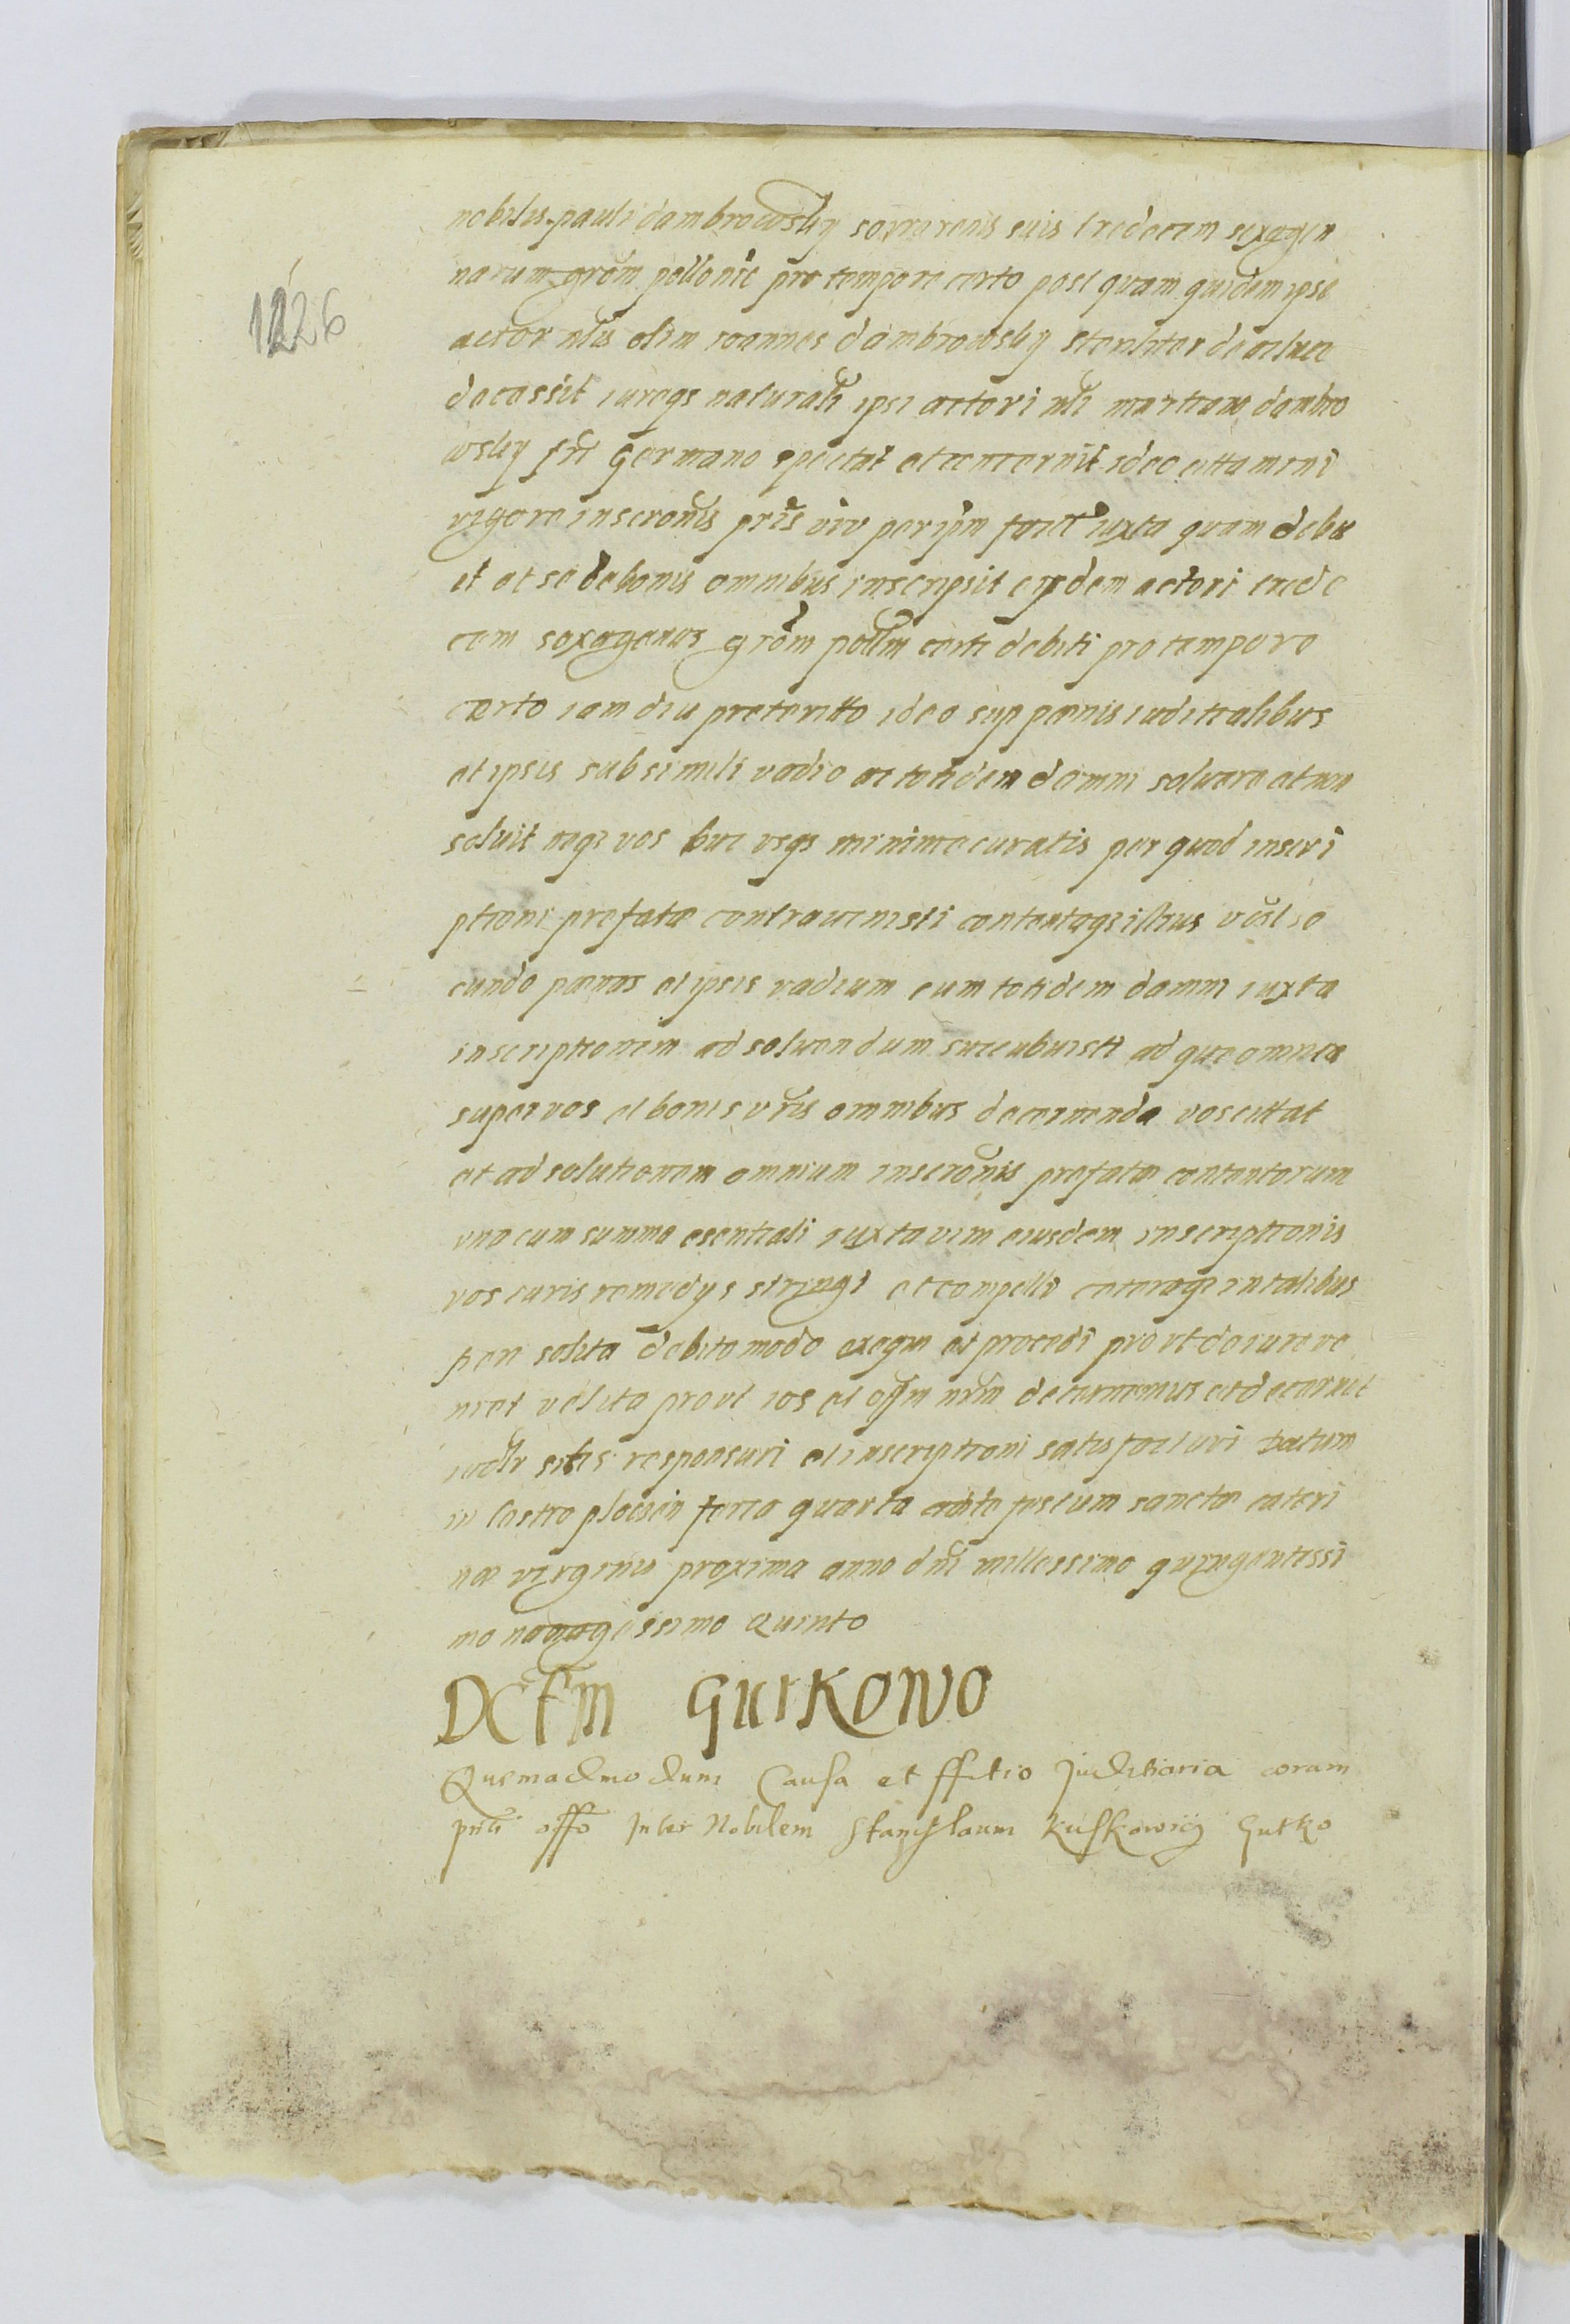 1226
nobilis pauli dambrowsky sororenis suis tredecem sexagen
narum grom pollonic pro tempore certo post quam quidem ipse
actor nlis olim ioannes dambrowsky steriliter de ac luce
decessit iureqз naturali ipsi actori nli martino dambro
wsky fri germano spectat et concernit ideo attamini
vigore inscronis pris viv per ipm fact iuxta quam debu
it et se de bonis omnibus inscripsit eisdem actori trede
cem sexagenas grom pollm certi debiti pro tempore
certo iam diu preteritto ideo sup pœnis iuditialibus
et ipsis sub simili vadio ac totidem damni soluere et non
soluit neqз vos huc vsqз minime curatis per quod inscri
ptioni prefatæ contrauenisti contentaqз illius
cundo pœnas et ipsis vadium cum totidem damni iuxta
inscriptionem ad soluendum succubuisti ad que omnia
super vos et bonis vris omnibus decernenda vos cittat
et ad solutionem omnium inscronis prefatæ contentorum
vna cum summa esentiali iuxta vim eiusdem inscriptionis
vos iuris remedys stringi et compelli ceteraqз in talibus
fieri solita debito modo exequi et procedi prout de iure ve
niet velita prout ios et offm nrm decernemus et decernit
iudlr sitis responsuri et inscriptioni satisfacturi Datum
in Castro plocen feria quarta ante festum sanctæ cateri
næ virginis proxima anno dni millessimo quingentessi
mo nonagessimo quinto
DCtm GutKowo
Quemadmodum Causa et Judiciaria coram
pnti offo Inter Nobilem Stanislaum Kuskowicz Gutko